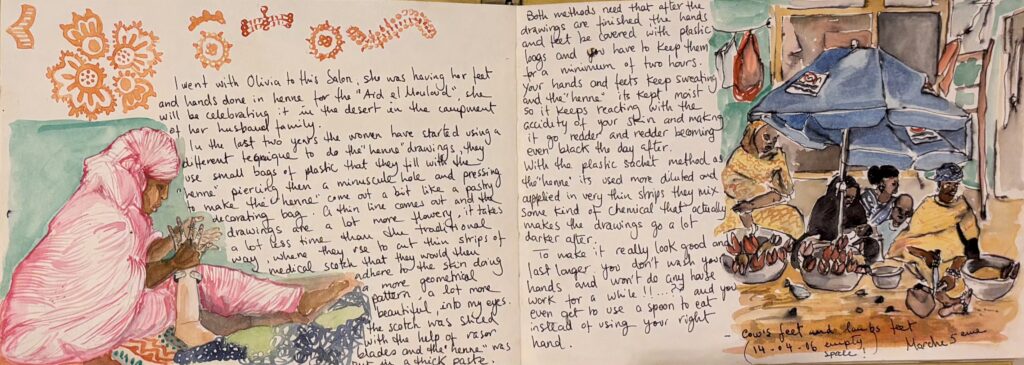 I went with Olivia to this Salon, she was having her feet
and hands done in henne for the "Aid el Moulard", she
will be celebrating it in the desert in the campment
of her husband family.
In the last two years the women have started using a
different tecnique to do the "henne" drawings, they
use small bags of plastic that they fill with the
"henne" piercing then a minuscul hole and pressing
to make the "henne" come out a bit like a pastry
decorating bag. A thin line comes out and the
drawings are a lot more flowery, it takes
a lot less time than the traditional
way, where they use to cut thin strips of
medical scotch that they would then
adhere to the skin doing
a more geometrical
pattern, a lot more
beautiful, into my eyes.
the scotch was sliced
with the help of rasor
blades and the "henne" was
put in a thick paste.
Both methods need that after the
drawings are finished the hands
and feet be covered with plastic
bags and you have to keep them
for a minimum of two hours.
Your hands and feets keep sweating
and the "henne" its kept moist
so it keeps reacting with the
accidity of your skin and making
it go redder and redder becoming
even black the day after.
With the plastic stachet method as
the "henne" its used more diluted and
applied in very thin strips they mix
some kind of chemical that actually
makes the drawings go a lot
darker after.
To make it really look good and
last longer, you don't wash you
hands and won't do any house
work for a while !!..!?? and you
even get to use a spoon to eat
instead of using your right
hand.
- Cow's feet and lambs feet
(14-04-06 empty
space!)
Marche 5eme